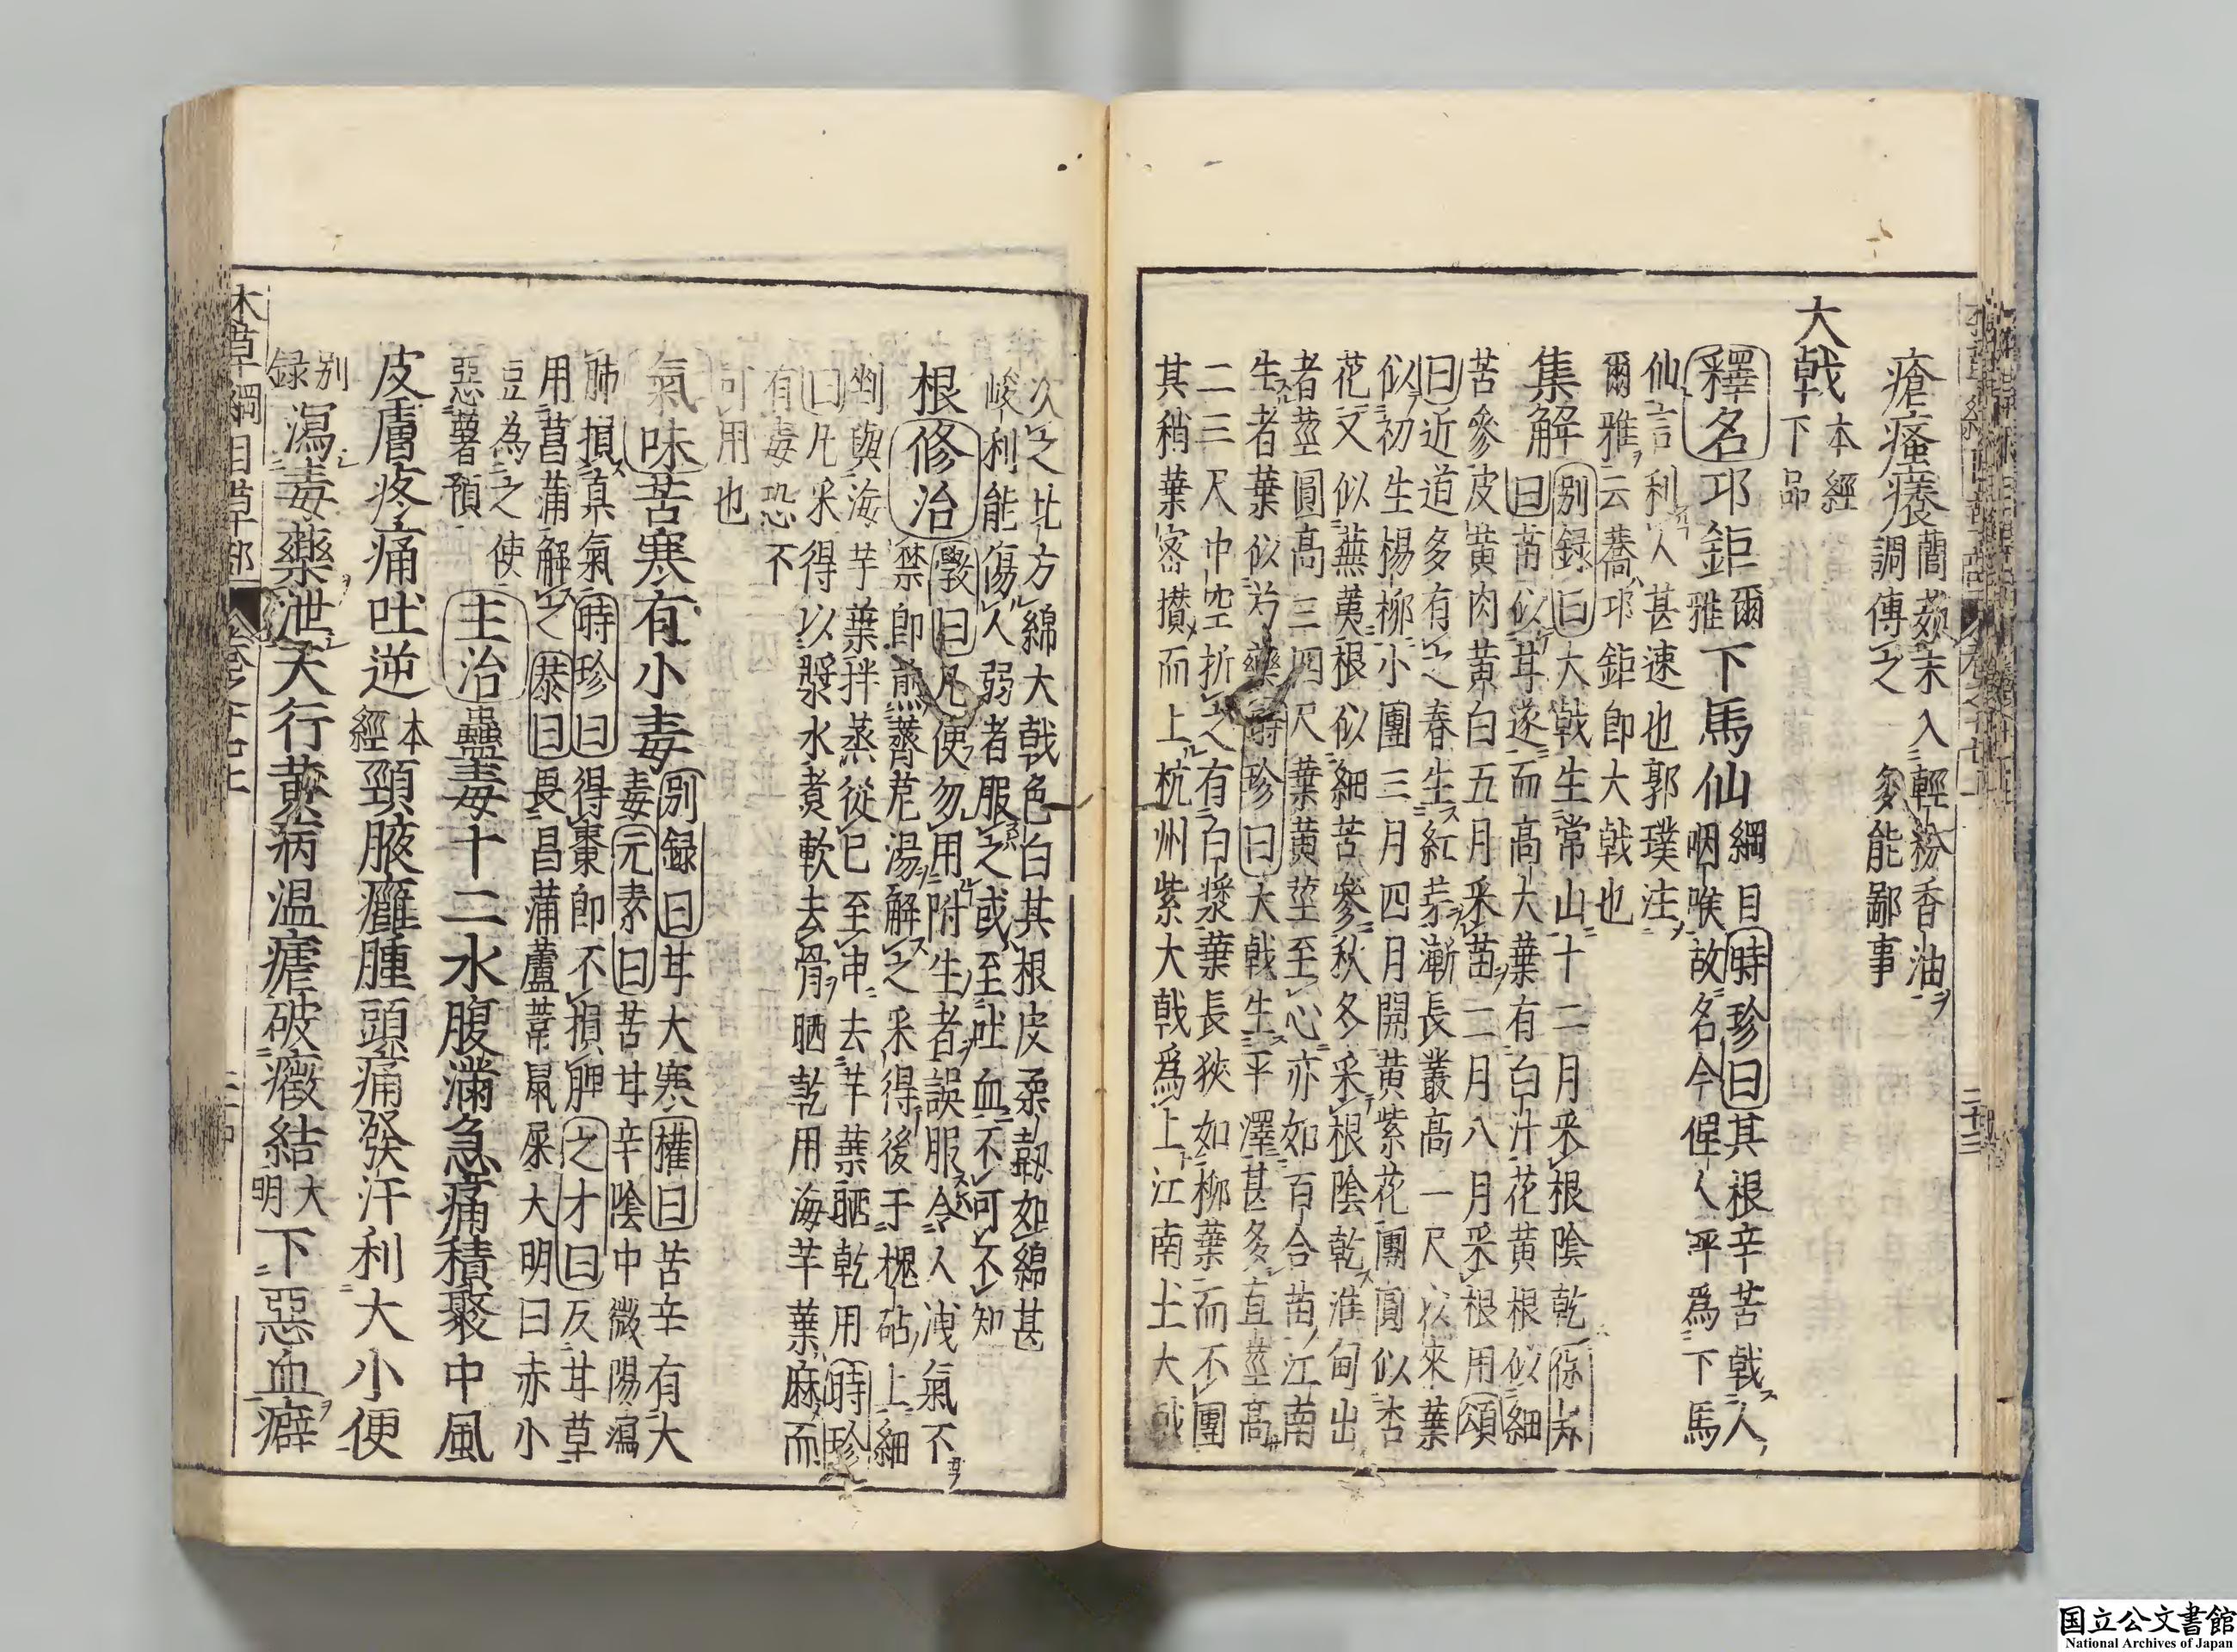 瘡瘙癢藺茹末入輕粉香油
調傳之　多能鄙事
大戟本經
下品
釋名邛鉅爾雅下馬仙綱目時珍曰其根辛苦戟人
咽喉故名今俚人呼爲下馬
仙言利人甚速也郭璞注
爾雅云蕎邛鉅即大戟也
集解別録曰大戟生常山十二月采根陰乾保昇
曰苗似甘遂而高大葉有白汁花黄根似細
苦參皮黄肉黄白五月采苗二月八月采根用頌
曰近道多有之春生紅芽漸長叢高一尺以來葉
似初生楊柳小團三月四月開黄紫花團圓似杏
花又似蕪荑根似細苦參秋冬采根陰乾淮甸出
者莖圓高三四尺葉黄莖至心亦如百合苗江南
生者葉似芍藥時珍曰大戟生平澤甚多直莖高
二三尺中空折之有白漿葉長狹如柳葉而不團
其稍葉密攅而上杭州紫大戟爲上江南土大戟
次之北方綿大戟色白其根皮柔韌如綿甚
峻利能傷人弱者服之或至吐血不可不知
根修治斆曰凡使勿用附生者誤服令人洩氣不
禁即煎薺苨湯解之采得後于槐砧上細
剉與海芋葉拌蒸從巳至申去芋葉晒乾用時珍
曰凡采得以漿水煮軟去骨晒乾用海芋葉麻而
有毒恐不
可用也
氣味苦寒有小毒別録曰甘大寒權曰苦辛有大
毒元素曰苦甘辛陰中微陽瀉
肺損真氣時珍曰得棗即不損脾之才曰反甘草
用菖蒲解之恭曰畏菖蒲蘆葦鼠屎大明曰赤小
豆為之使
惡薯蕷
主治蠱毒十二水腹滿急痛積聚中風
皮膚疼痛吐逆本經頸腋癰腫頭痛發汗利大小便
別録瀉毒藥泄天行黄病温瘧破癥結大明下惡血癖
本草綱目草部
国立公文書館
National Archives of Japan